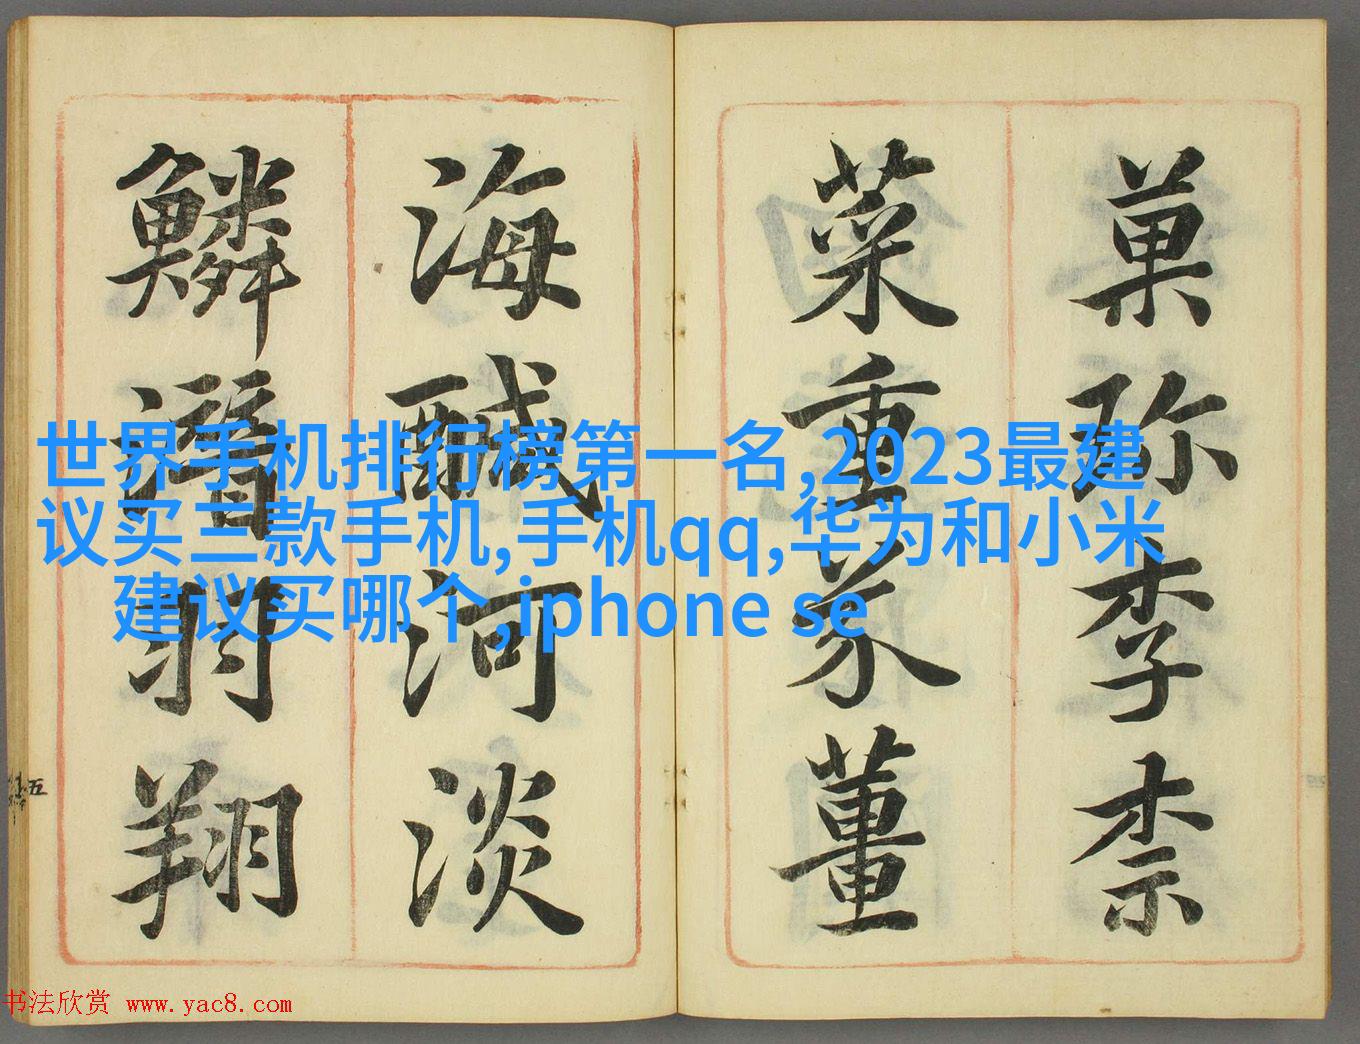 菓珎李柰
菜重芥薑
海醎河淡
鱗潛羽翔
五
世界手机排行榜第一名,2023最建
议买三款手机,手机qq,华为和小米
建议买哪个,iphone se
书法欣赏 www.yac8.com